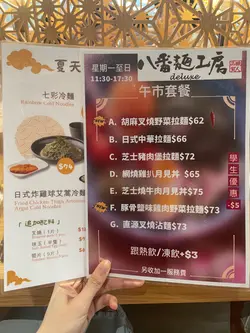 夏天
七彩冷麵
Rainbow Cold Noodles
$74
日式炸雞球艾菜冷麵
「追加配料」
芝麻 (1份)
星期一至日
11:30-17:30
八番麵工房
deluxe
午市套餐
A. 胡麻叉燒炆拉麵$62
B. 日式中華拉麵$66
C. 芝士豬肉堡拉麵$72
D. 網燒雞扒月見丼 $65
E. 芝士燒牛肉月見丼$75
F. 豚骨鹽味雞肉野菜拉麵$73
G. 直源叉燒沾麵 $73
學生優惠
-$5
跟熱飲/凍飲+$3
另收加一服務費